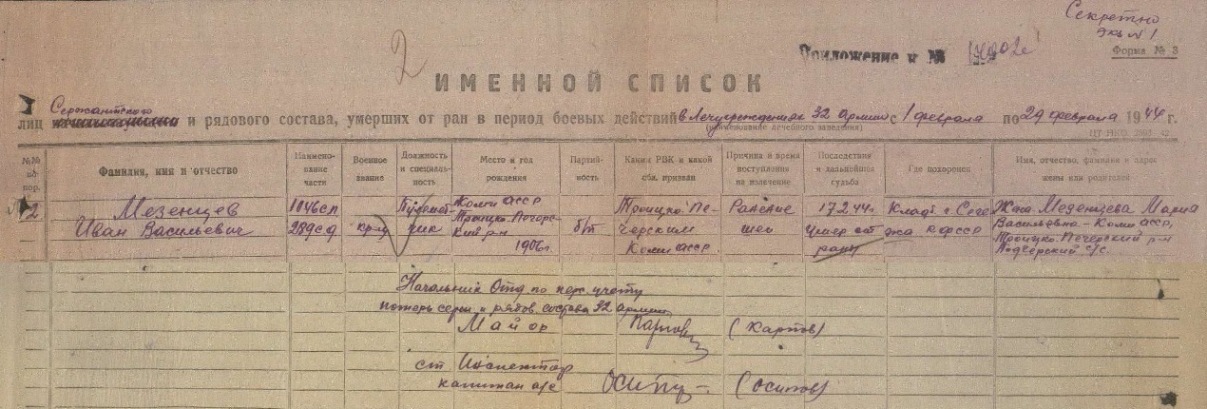 Секретно
экз N 1
Форма № 3
Приложение к №
2
ИМЕННОЙ СПИСОК
Сержантского
лиц и рядового состава, умерших от ран в период боевых действий в Лечучреждениях 32 Армии с 1 февраля по 29 февраля 1944 г.
(наименование лечебного заведения)
№№ по пор. Фамилия, имя и отчество Наименование части Военное звание Должность и специальность Место и год рождения Партийность Каким РВК и какой обл. призван Причина и время поступления на излечение Последствия и дальнейшая судьба Где похоронен Имя, отчество, фамилия и адрес жены или родителей
2 Мезенцев 1046сп Пулемет- Коми АССР Троицко-Пе- Ранение 17.2.44г. Кладб. г. Сеге- Жена Мезенцева Мария
Иван Васильевич 289сд кр-ц чик Троицко-Печорс- б/п черским шеи Умер от жа КФССР Васильевна - Коми АССР,
кий р-н Коми АССР ран Троицко-Печерский р-н
1906г. Подчерский с/с.
Начальник Отд по перс. учету
потерь серж и рядов. состава 32 армии
Майор Карпов (Карпов)
ст Инспектор
капитан а/с Осипов (Осипов)